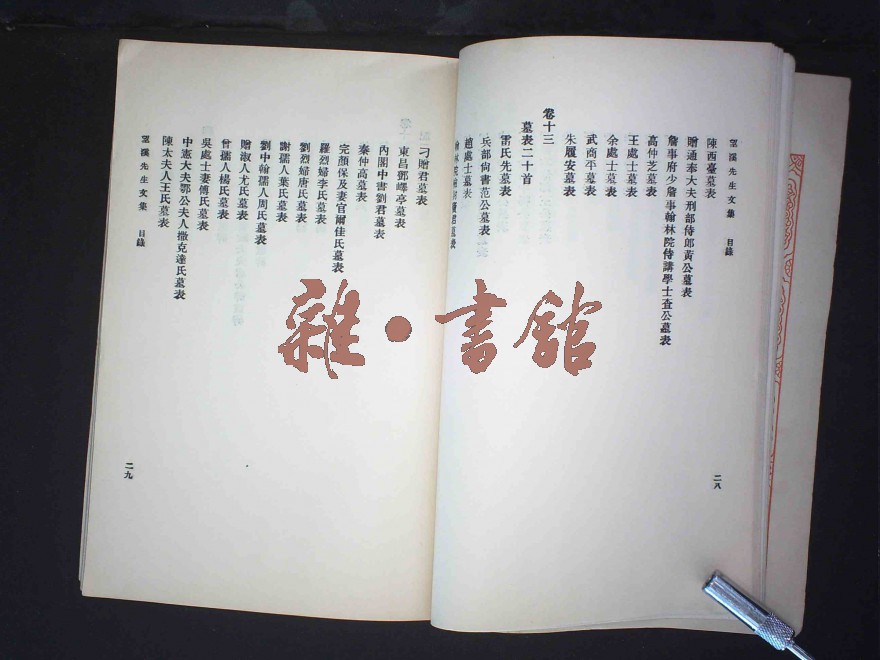 望溪先生文集 目錄
陳西臺墓表
贈通奉大夫刑部侍郎黃公墓表
詹事府少詹事翰林院侍講學士查公墓表
高仲芝墓表
王處士墓表
余處士墓表
武商平墓表
朱履安墓表
卷十三
墓表二十首
雷氏先墓表
兵部尚書范公墓表
趙處士墓表
翰林院
君墓表
二八
刁贈君墓表
東昌鄧嶧亭墓表
內閣中書劉君墓表
秦仲高墓表
完顏保及妻官爾佳氏墓表
羅烈婦李氏墓表
劉烈婦唐氏墓表
謝孺人葉氏墓表
劉中翰孺人周氏墓表
贈淑人尤氏墓表
曾孺人楊氏墓表
吳處士妻傅氏墓表
中憲大夫鄂公夫人撒克達氏墓表
陳太夫人王氏墓表
望溪先生文集 目錄
二九
雜·書館